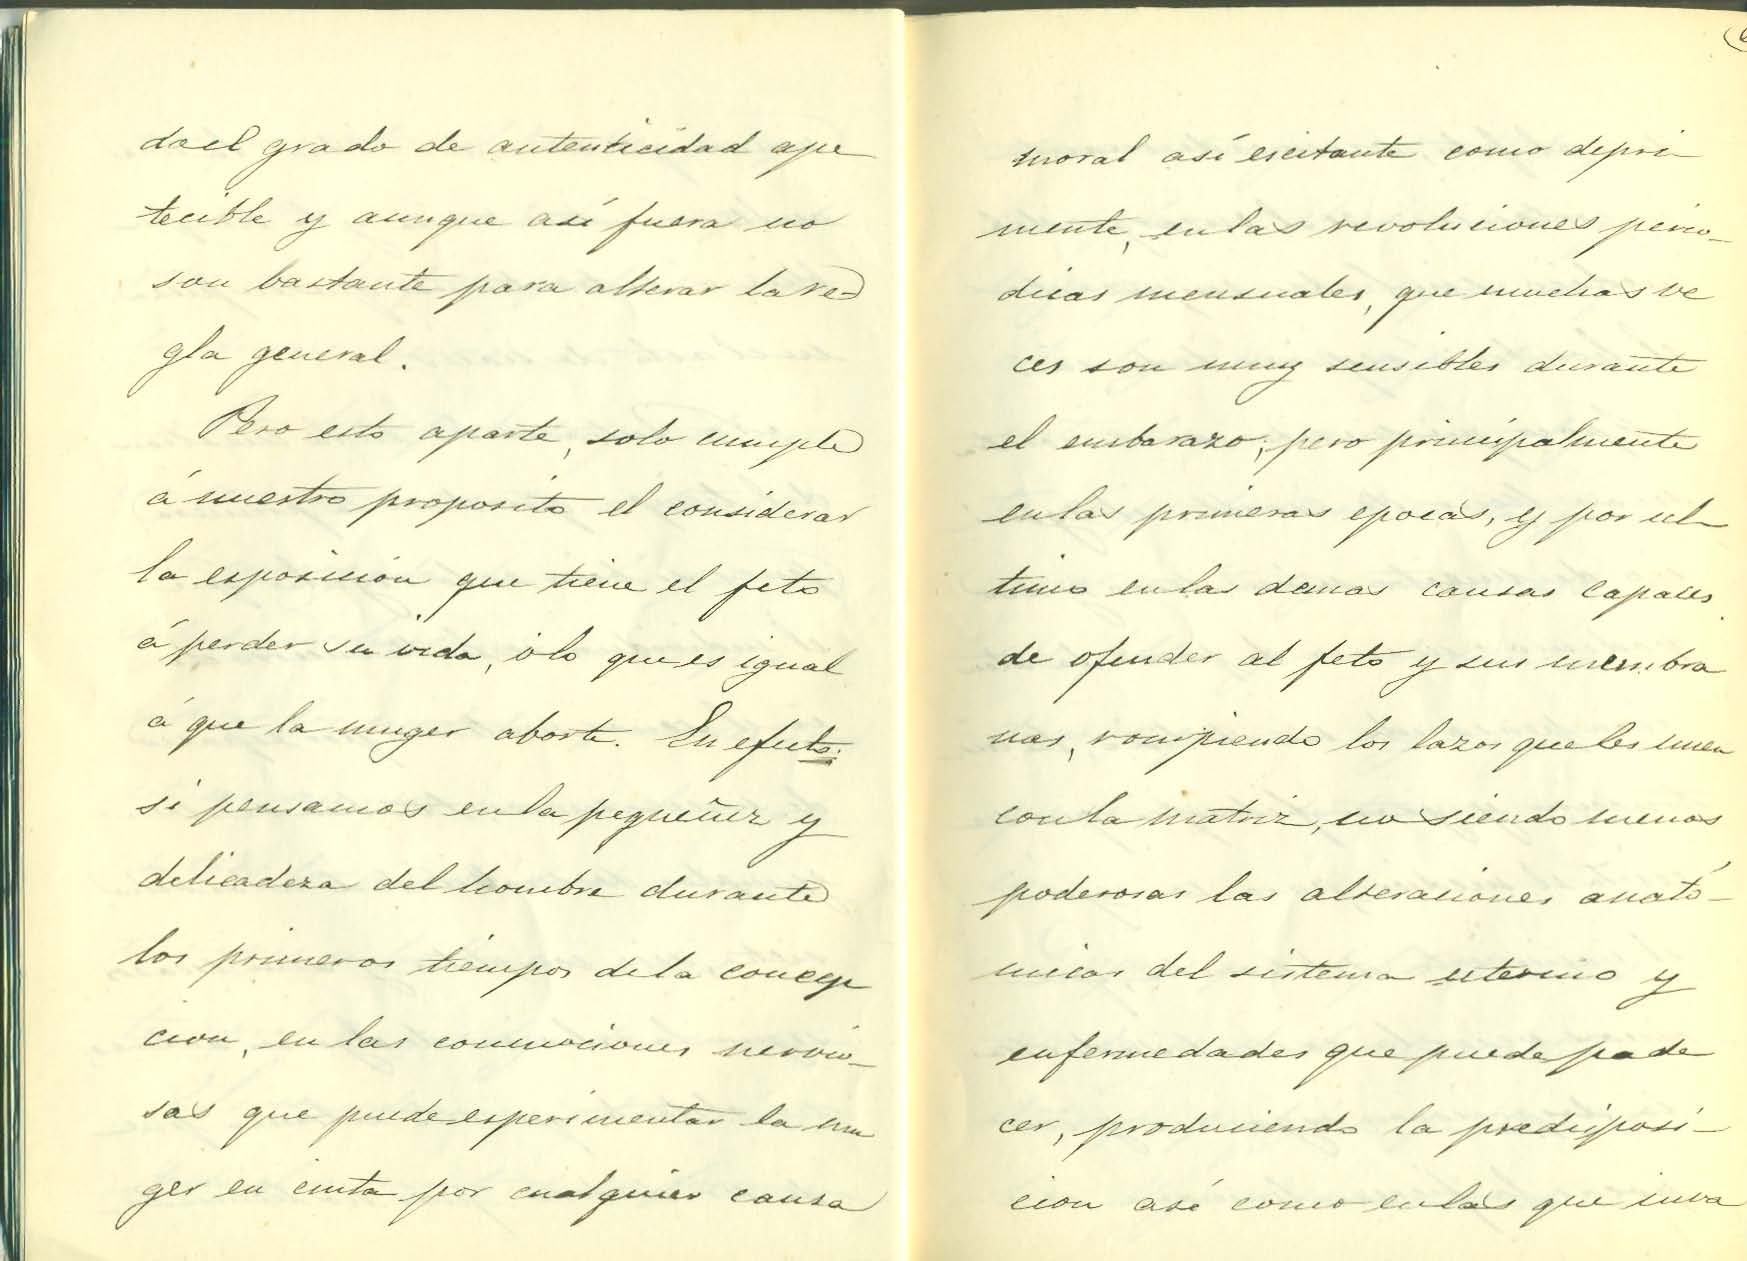 do el grado de autenticidad ape
tecible y aunque así fuera no
son bastante para alterar la re
gla general.
Pero esto aparte, solo cumple
á nuestro proposito el considerar
la esposición que tiene el feto
á perder su vida, ó lo que es igual
á que la muger aborte. En efecto:
si pensamos en la pequeñez y
delicadeza del hombre durante
los primeros tiempos de la concep
cion, en las conmociones nervio-
sas que puede esperimentar la mu
ger en cinta por cualquier causa
moral así escitante como depri-
mente, en las revoluciones perio-
dicas mensuales, que muchas ve
ces son muy sensibles durante
el embarazo; pero principalmente
en las primeras epocas, y por ul-
timo en las demas causas capaces
de ofender al feto y sus membra
nas, rompiendo los lazos que les unen
con la matriz, no siendo menos
poderosas las alteraciones anató-
micas del sistema uterino y
enfermedades que puede pade
cer, produciendo la predisposi-
cion así como en las que inva